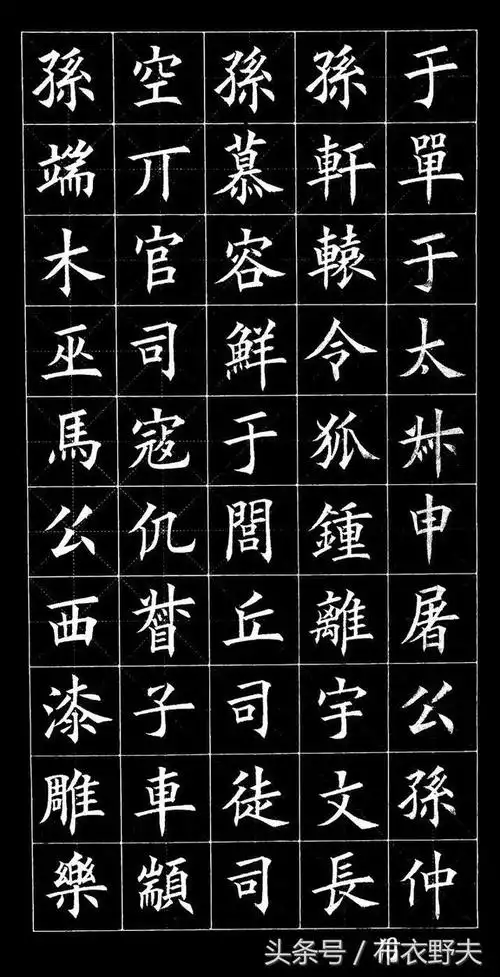 于單于太叔申屠公孫仲
孫軒轅令狐鍾離宇文長
孫慕容鮮于閭丘司徒司
空丌官司寇仉督子車顓
孫端木巫馬公西漆雕樂
头条号 / 布衣野夫